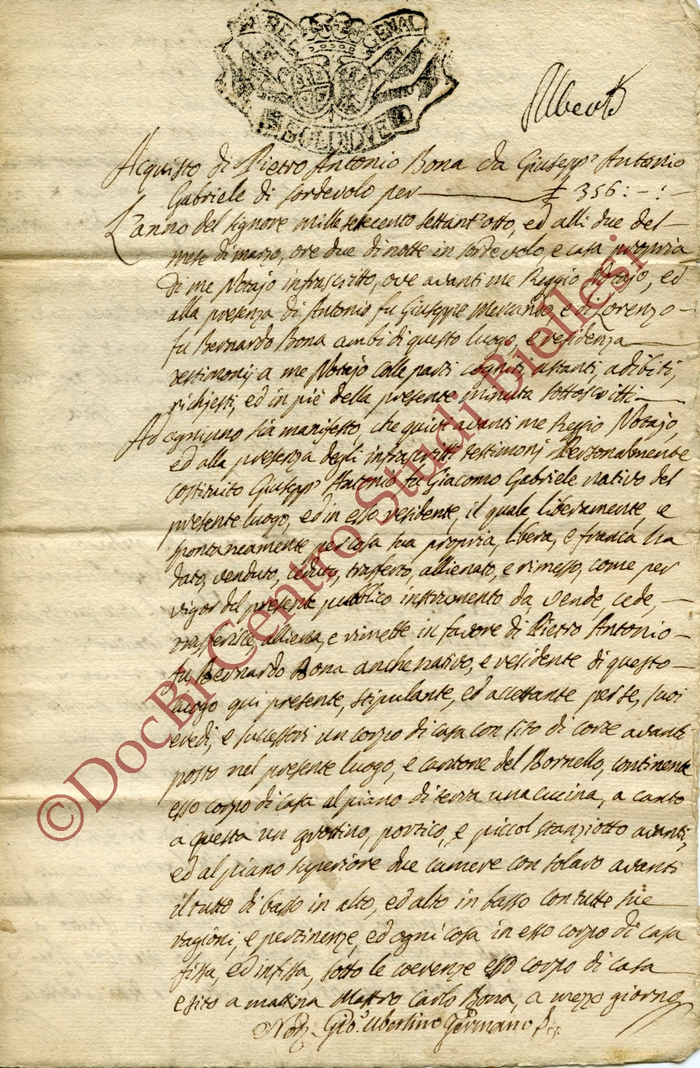 SOLDI DUE
Alberti
Acquisto di Pietro Antonio Bona da Giusepp.e Antonio
Gabriele di Sordevolo per £ 356: - : -
L'anno del signore mille settecento settant'otto, ed alli due del
mese di marzo, ore due di notte in Sordevolo, e casa propria
di me Notajo infrascritto, ove avanti me Reggio Notajo, ed
alla presenza di Antonio fu Giuseppe Mercando, e di Lorenzo
fu Bernardo Bona ambi di questo luogo, e residenza
testimonij a me Notajo colle parti cogniti, astanti, adibiti,
richjesti, ed in piè della presente minuta sottoscritti
Ad ogniuno sia manifesto, che quivi avanti me Reggio Notajo,
ed alla presenza degli infrascritti testimonj Personalmente
costituito Giusepp.e Antonio fu Giacomo Gabriele nativo del
presente luogo, ed in esso residente, il quale liberamente, e
spontaneamente per cosa sua propria, libera, e franca ha
dato, venduto, ceduto, trasferto, allienato, e rimesso, come per
vigor del presente pubblico instrumento da, vende, cede,
trasferisce, alliena, e rimette in favore di Pietro Antonio
fu Bernardo Bona anche nativo, e residente di questo
luogo qui presente, stipulante, ed accettante per se, suoi
eredi, e successori un corpo di casa con sito di corte avanti
posto nel presente luogo, e cantone del Bornello, continente
esso corpo di casa al piano di terra una cucina, a canto
a questa un crottino, portico, e piccol stanziotto avanti,
ed al piano superiore due camere con solaro avanti
il tutto di basso in alto, ed alto in basso con tutte sue
ragioni, e pertinenze, ed ogni cosa in esso corpo di casa
fissa, ed infissa, sotto le coerenze esso corpo di casa
e sito a matina Mastro Carlo Bona, a mezzo giorno
Not. Gio. Ubertino Germano
©DocBi Centro Studi Biellesi